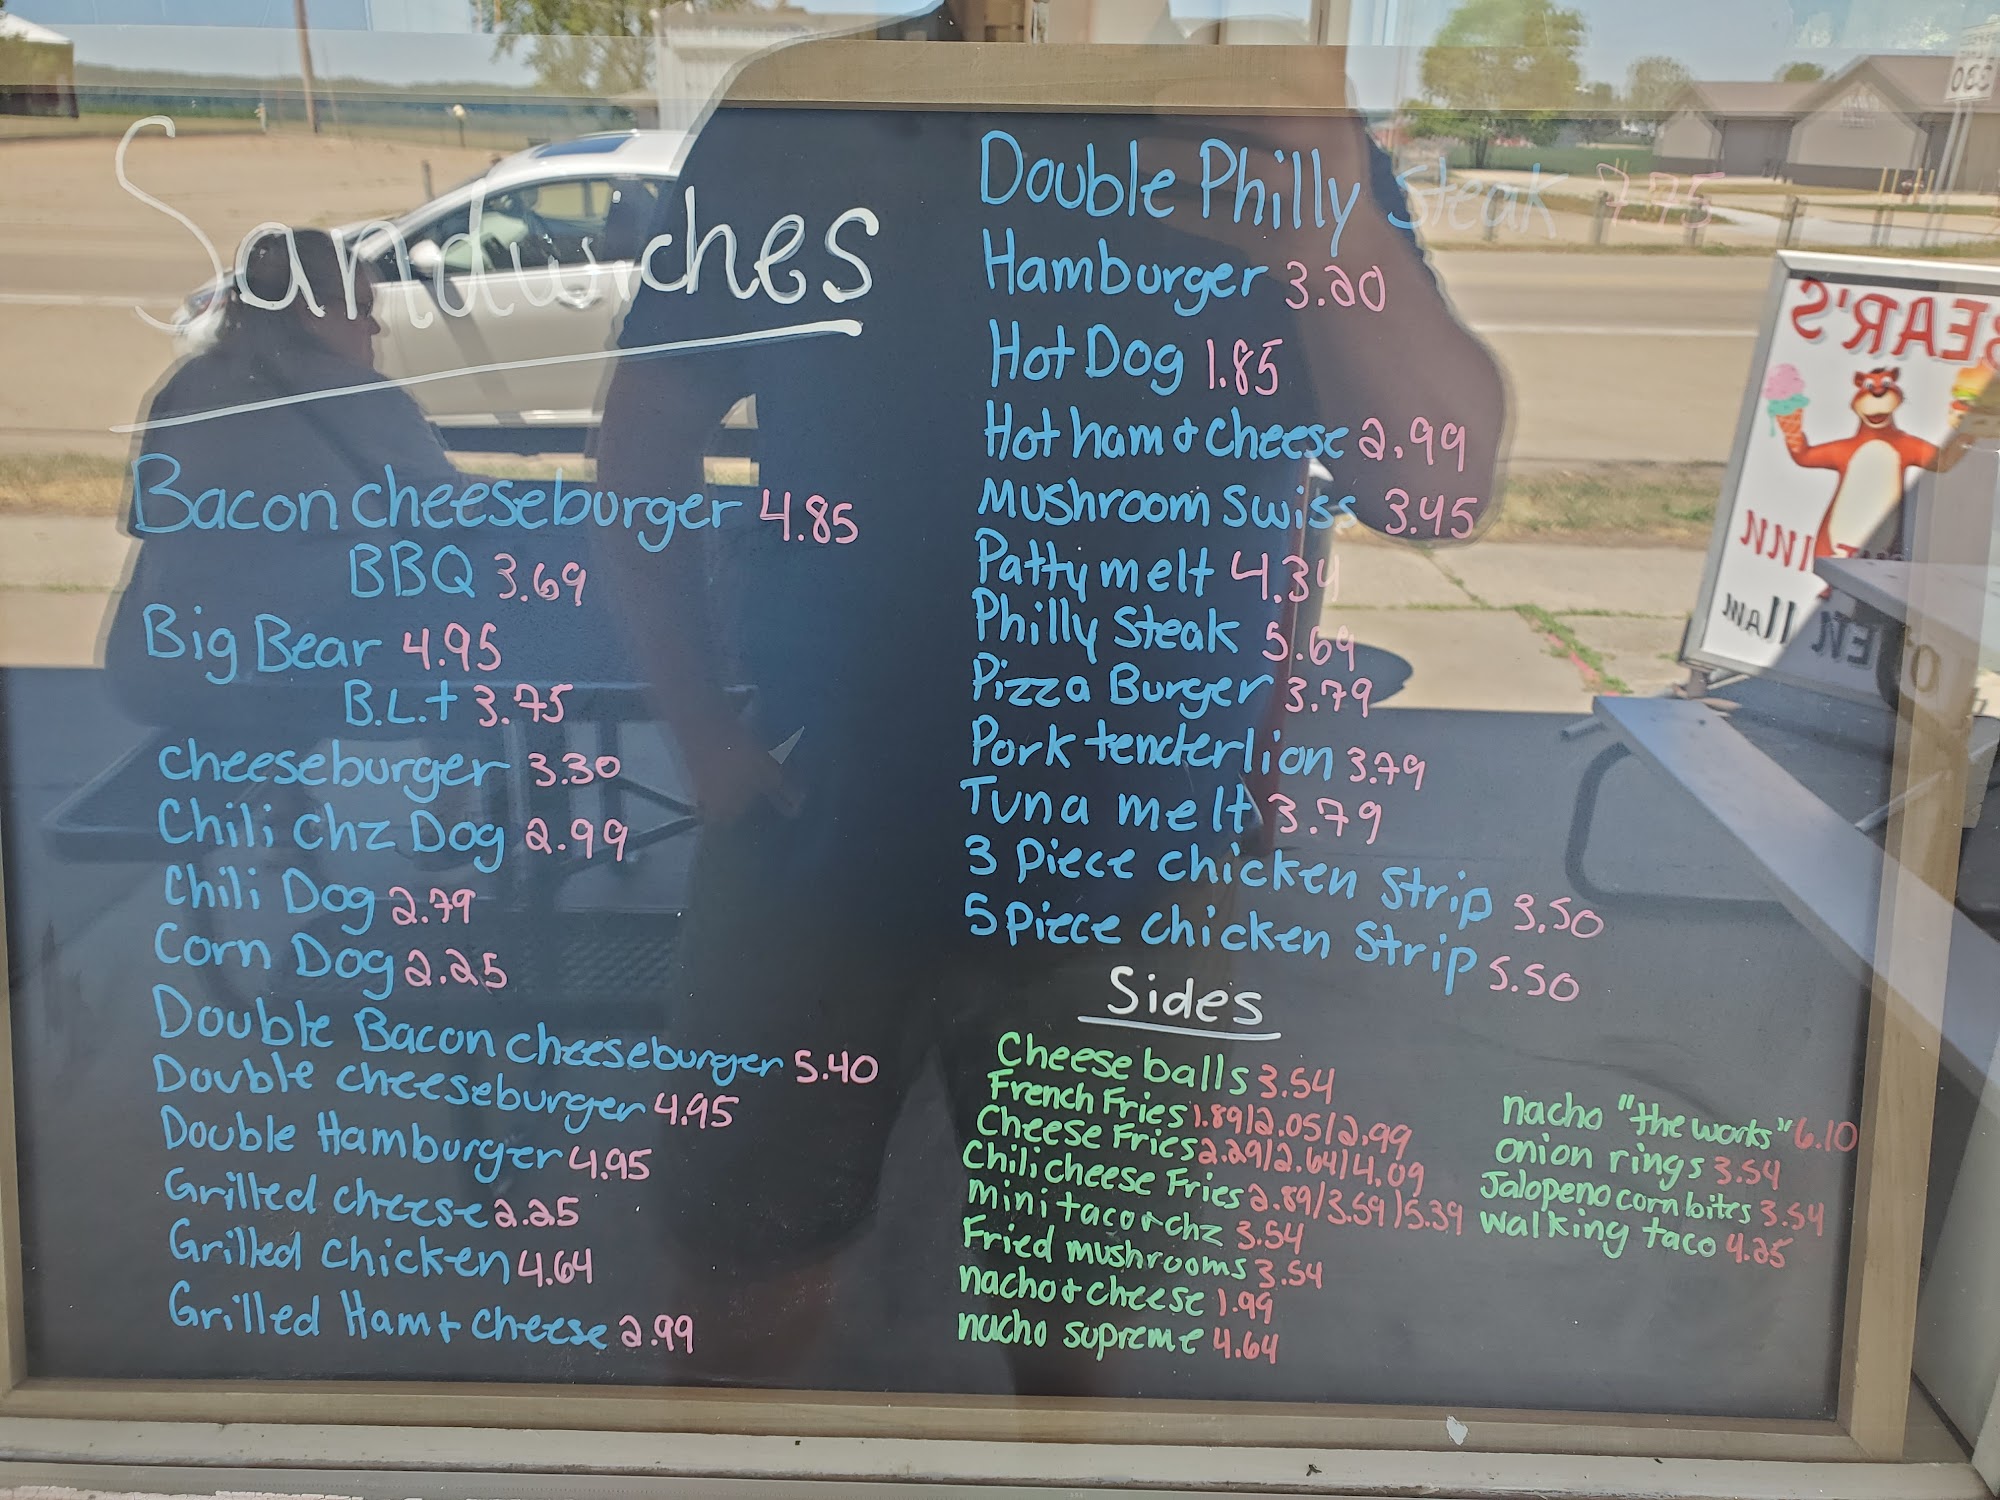 Sandwiches
Bacon cheeseburger 4.85
BBQ 3.69
Big Bear 4.95
B.L.t 3.75
cheeseburger 3.30
Chili Chz Dog 2.99
Chili Dog 2.79
Corn Dog 2.25
Double Bacon cheeseburger 5.40
Double cheeseburger 4.95
Double Hamburger 4.95
Grilled cheese 2.25
Grilled chicken 4.64
Grilled Ham + cheese 2.99
Double Philly Steak 7.75
Hamburger 3.20
Hot Dog 1.85
Hot ham + cheese 2.99
Mushroom Swiss 3.45
Patty melt 4.34
Philly Steak 5.69
Pizza Burger 3.79
Pork tenderlion 3.79
Tuna melt 3.79
3 Piece chicken Strip 3.50
5 Piece chicken Strip 5.50
Sides
Cheese balls 3.54
French Fries 1.89/2.05/2.99
Cheese Fries 2.29/2.64/4.09
Chili cheese Fries 2.89/3.59/5.39
mini taco + chz 3.54
Fried mushrooms 3.54
nacho + cheese 1.99
nacho supreme 4.64
nacho "the works" 6.10
onion rings 3.54
Jalopeno corn bites 3.54
walking taco 4.25
BEAR'S
INN
11AM
330